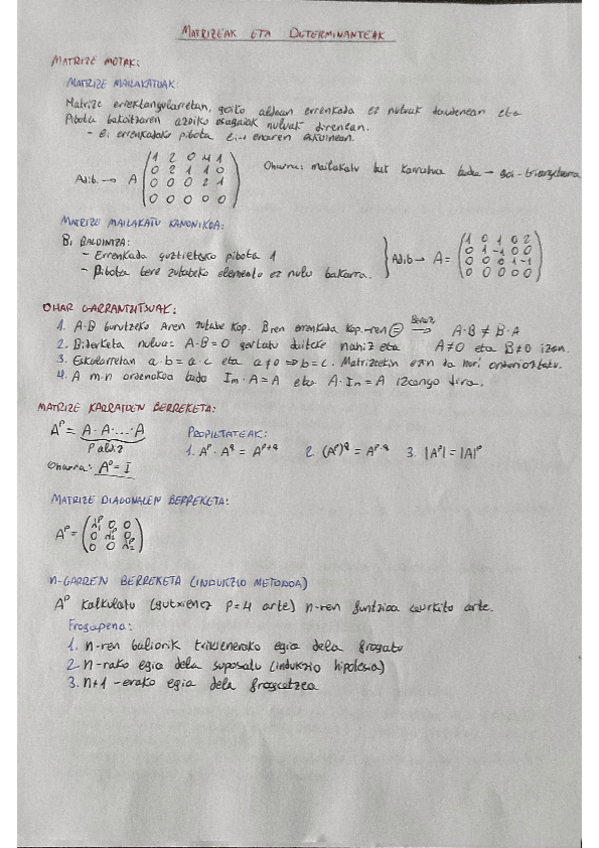 MATRIZEAK ETA DETERMINANTEAK
MATRIZE MOTAK:
MATRIZE MAILAKATUAK:
Matrize errektangularretan, goiko aldean errenkada ez nuluak daudenean eta
Pibota bakoitzaren azpiko osagaiak nuluak direnean.
- ei errenkadako pibota ei-1 enaren eskuinean.
Adib. → A (1 2 0 4 1
0 2 1 1 0
0 0 0 2 1
0 0 0 0 0)
Oharra: mailakatu bat karratua bada → goi-triangeluarra
MATRIZE MAILAKATU KANONIKOA:
BI BALDINTZA:
- Errenkada guztietako pibota 1
- Pibota bere zutabeko elementu ez nulu bakarra.
Adib → A = (1 0 1 0 2
0 1 -1 0 0
0 0 0 1 -1
0 0 0 0 0)
OHAR GARRANTZITSUAK:
1. A·B burutzeko Aren zutabe kop. Bren errenkada kop.-ren = Beraz → A·B ≠ B·A
2. Biderketa nulua: A·B = 0 gertatu daiteke nahiz eta A≠0 eta B≠0 izan.
3. Eskalarretan a·b = a·c eta a≠0 ⇒ b=c. Matrizeekin ezin da hori ondorioztatu.
4. A m·n ordenakoa bada Im·A = A eta A·In = A izango dira.
MATRIZE KARRATUEN BERREKETA:
A^p = A·A·...·A
p aldiz
Oharra: A^0 = I
PROPIETATEAK:
1. A^p · A^q = A^p+q 2. (A^p)^q = A^p·q 3. |A^p| = |A|^p
MATRIZE DIAGONALEN BERREKETA:
A^p = (λ1^p 0 0
0 λ2^p 0
0 0 λ2^p)
N-GARREN BERREKETA (INDUKZIO METODOA)
A^p kalkulatu (gutxienez p=4 arte) n-ren funtzioa aurkitu arte.
Frogapena:
1. n-ren baliorik txikienerako egia dela frogatu
2. n-rako egia dela suposatu (indukzio hipotesia)
3. n+1 -erako egia dela frogatzea